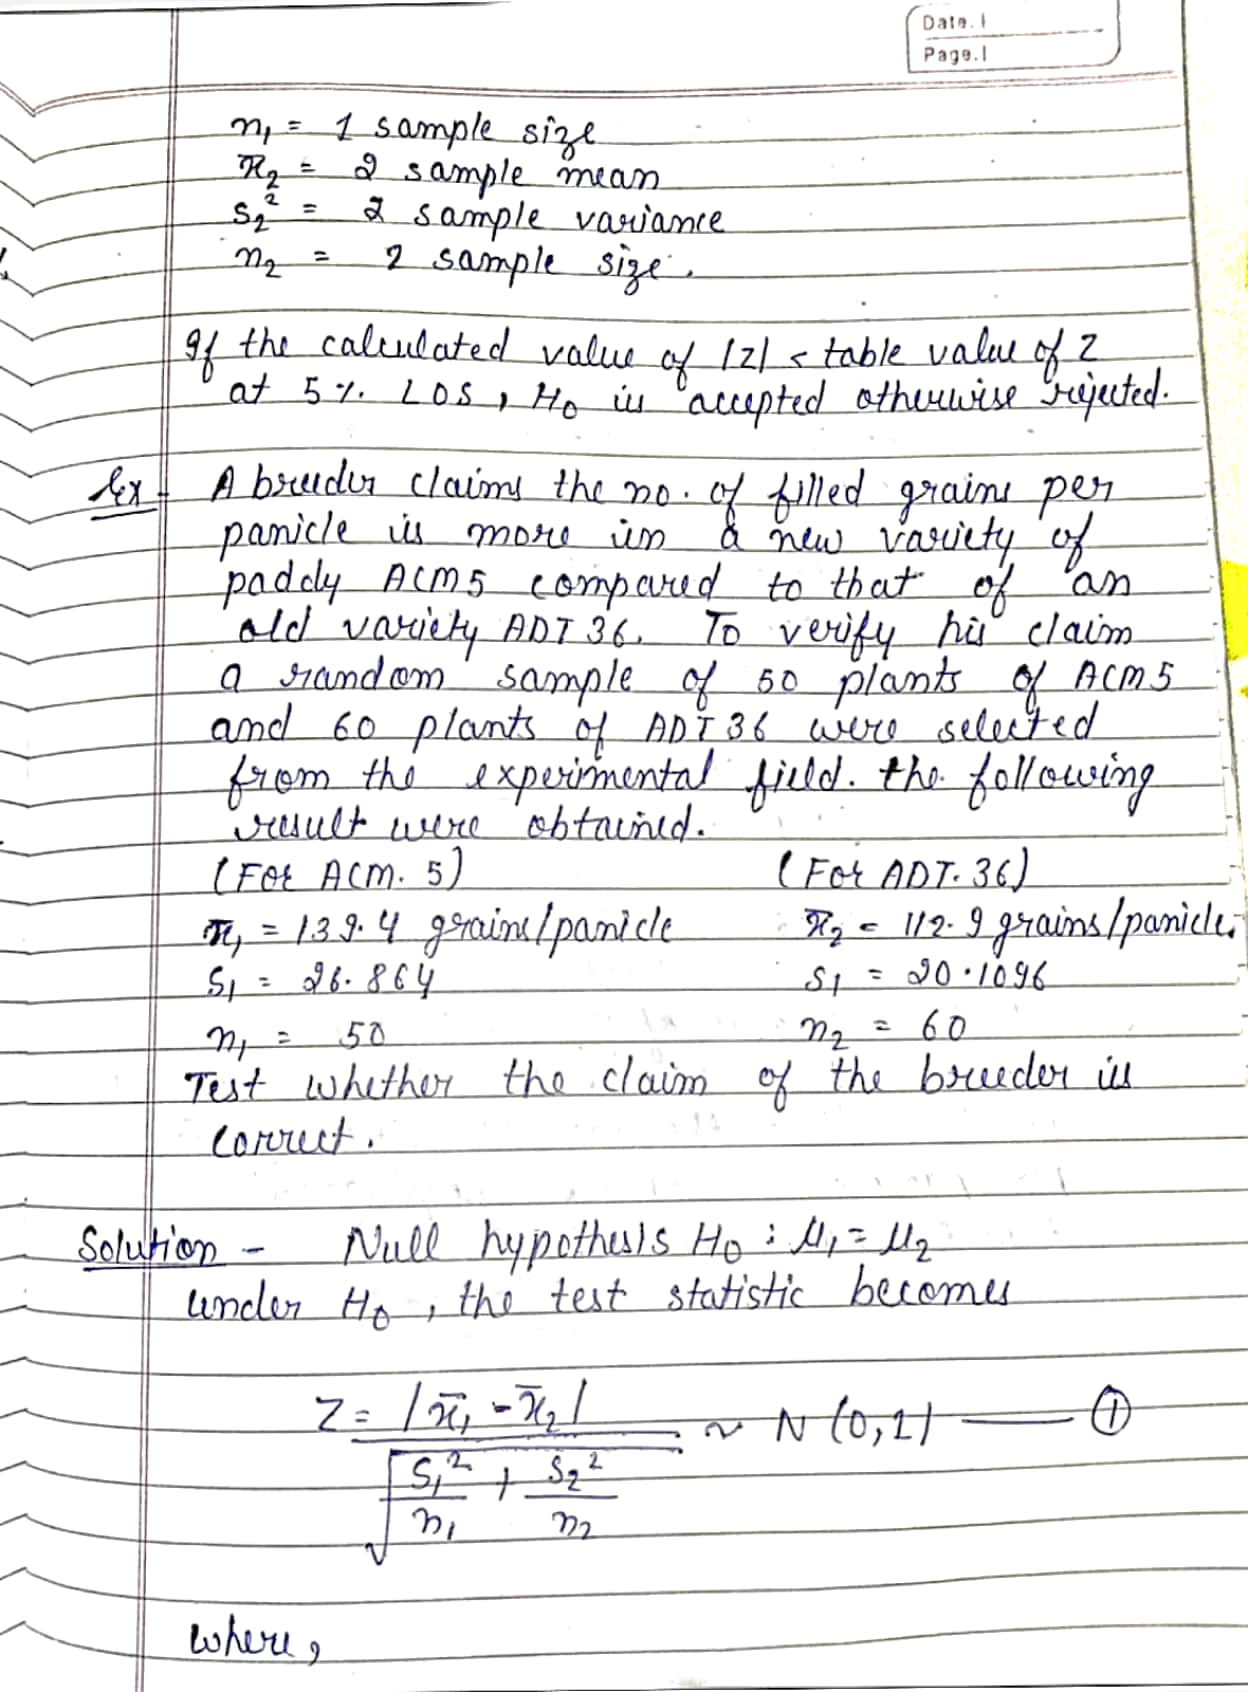 Date.
Page.
n₁ = 1 sample size
x̄₂ = 2 sample mean
s₂² = 2 sample variance
n₂ = 2 sample size.
If the calculated value of |Z| < table value of Z
at 5% LOS, H₀ is accepted otherwise rejected.
Ex - A breeder claims the no. of filled grains per
panicle is more in a new variety of
paddy ACM5 compared to that of an
old variety ADT 36. To verify his claim
a random sample of 50 plants of ACM5
and 60 plants of ADT 36 were selected
from the experimental field. the following
result were obtained.
(For ACM. 5) (For ADT. 36)
x̄₁ = 139.4 grains/panicle x̄₂ = 112.9 grains/panicle.
S₁ = 26.864 S₁ = 20.1096
n₁ = 50 n₂ = 60
Test whether the claim of the breeder is
correct.
Solution - Null hypothesis H₀ : μ₁ = μ₂
under H₀, the test statistic becomes
Z = |x̄₁ - x̄₂| / √(S₁²/n₁ + S₂²/n₂) ~ N (0,1) — ①
where,